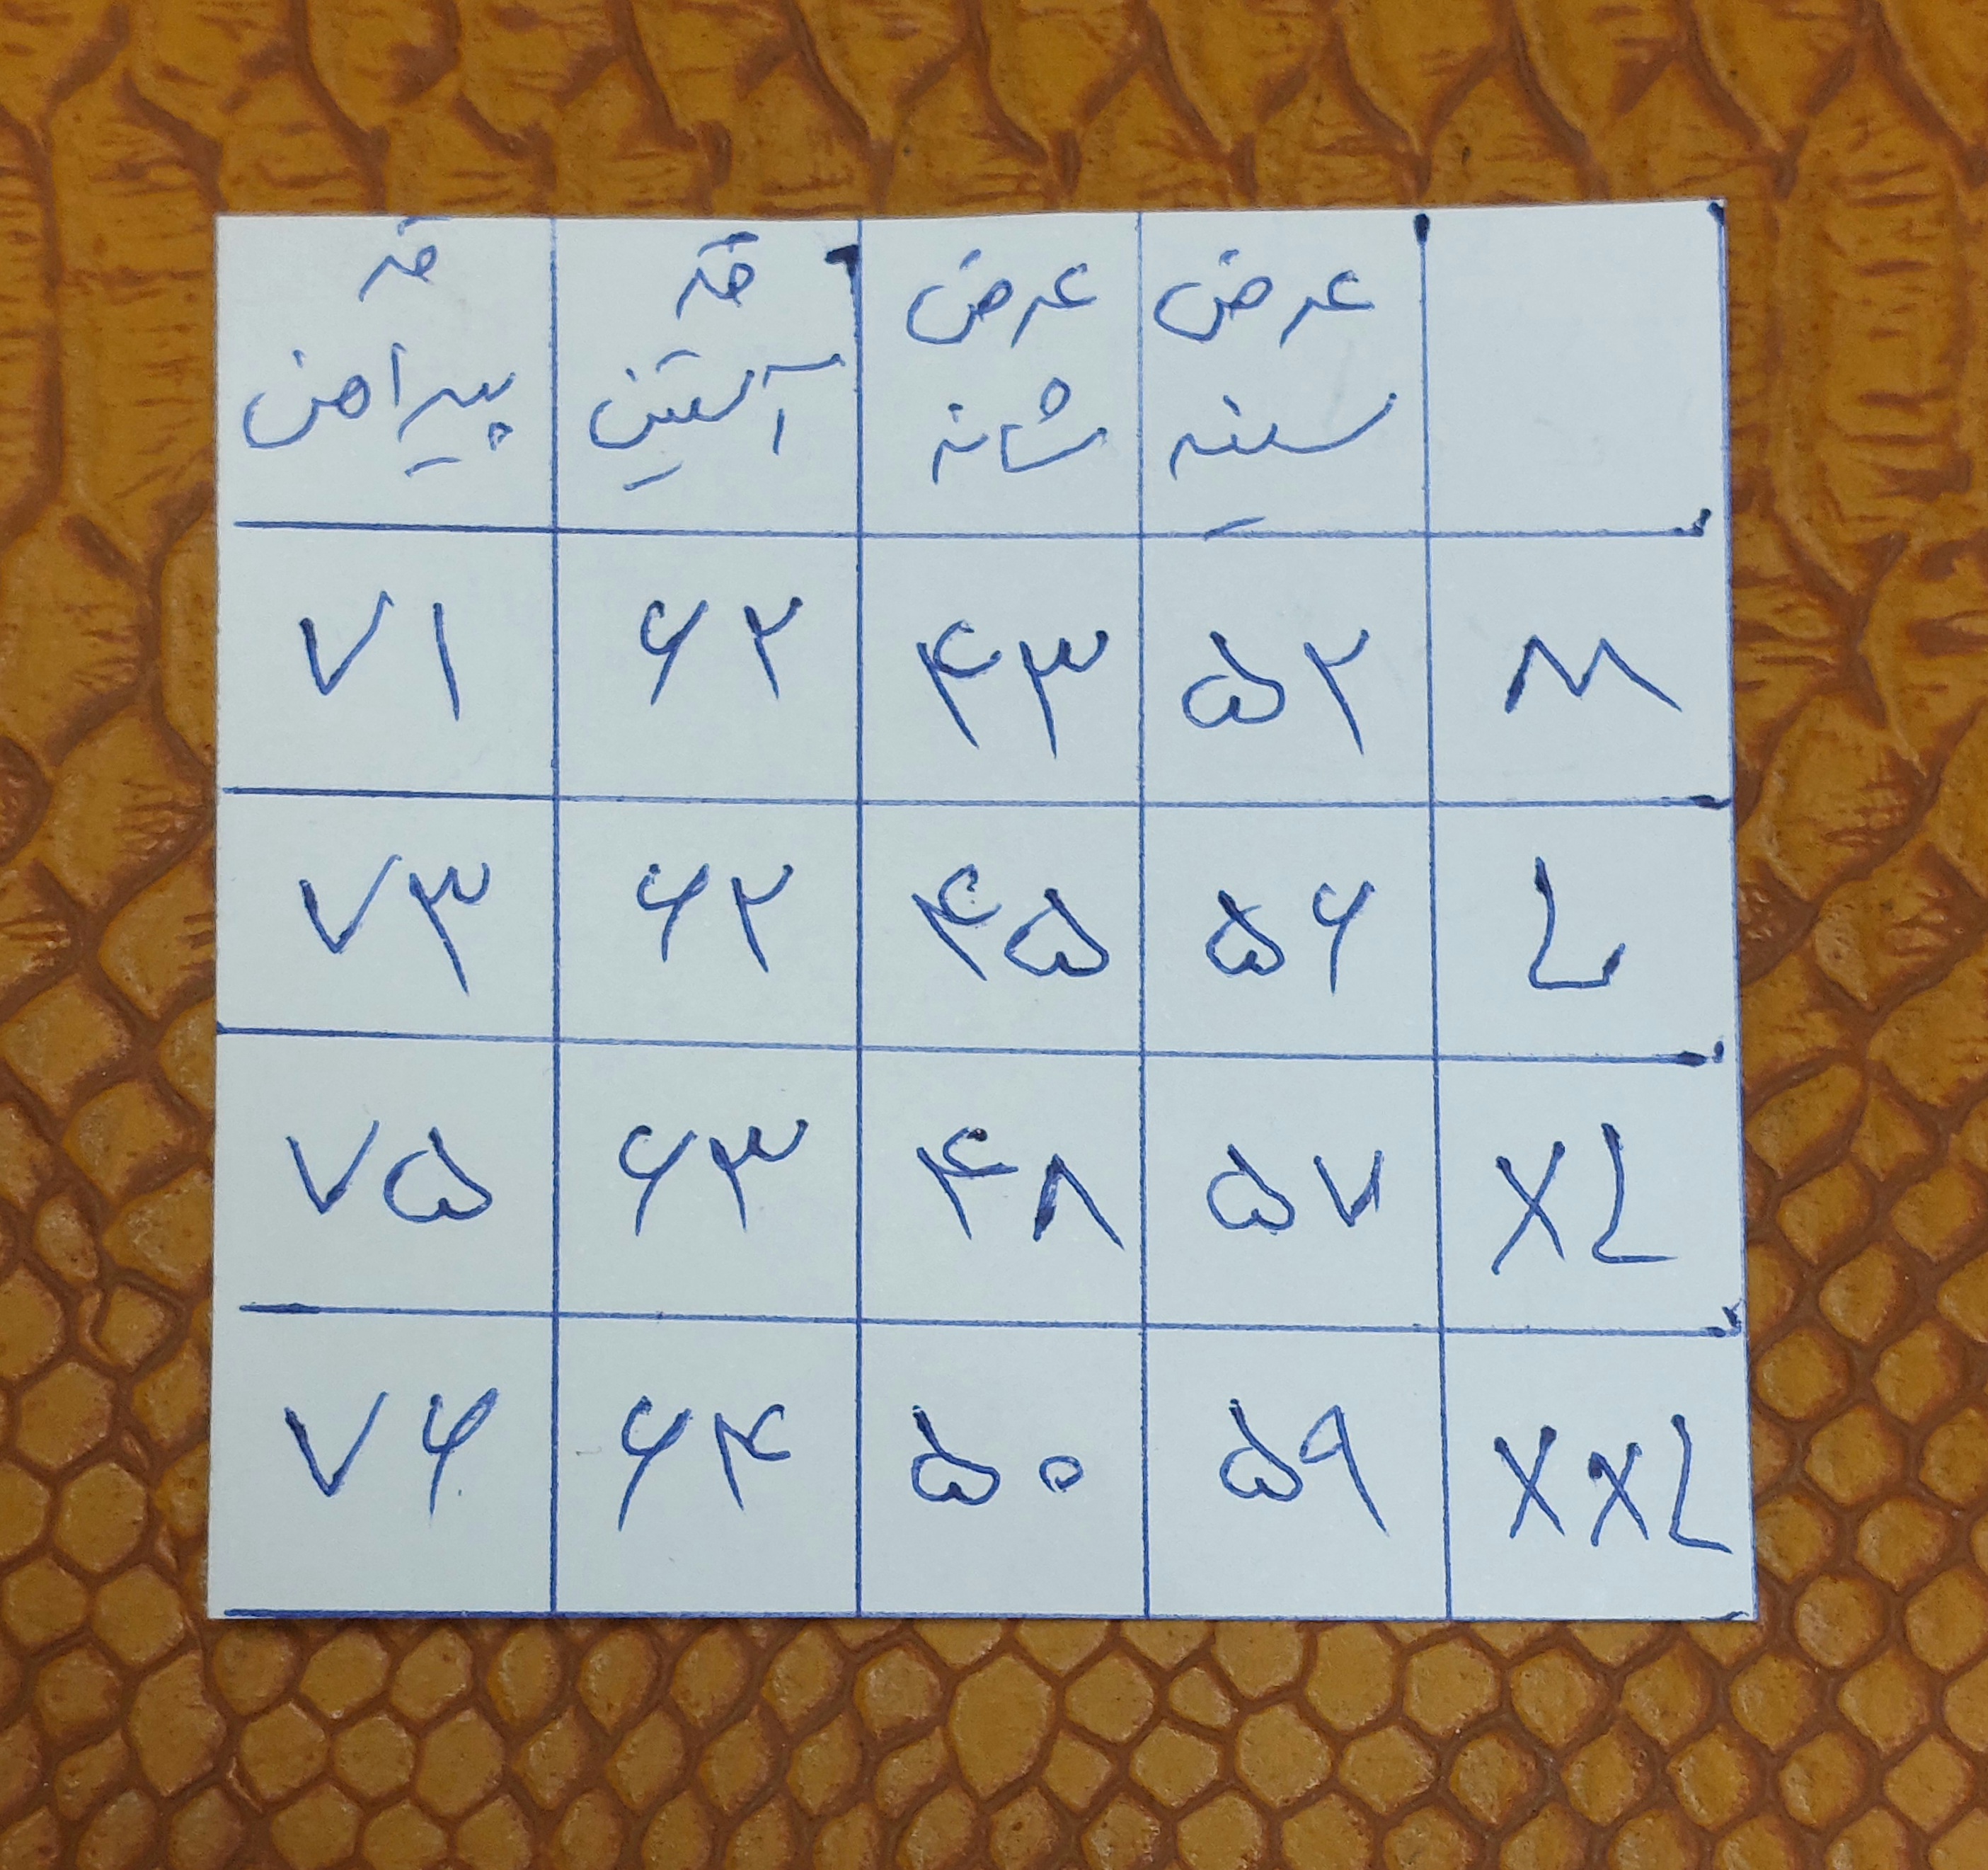 عرض سینه عرض شانه قد آستین قد پیراهن
M ۵۲ ۴۳ ۶۲ ۷۱
L ۵۶ ۴۵ ۶۲ ۷۳
XL ۵۷ ۴۸ ۶۳ ۷۵
XXL ۵۹ ۵۰ ۶۴ ۷۶